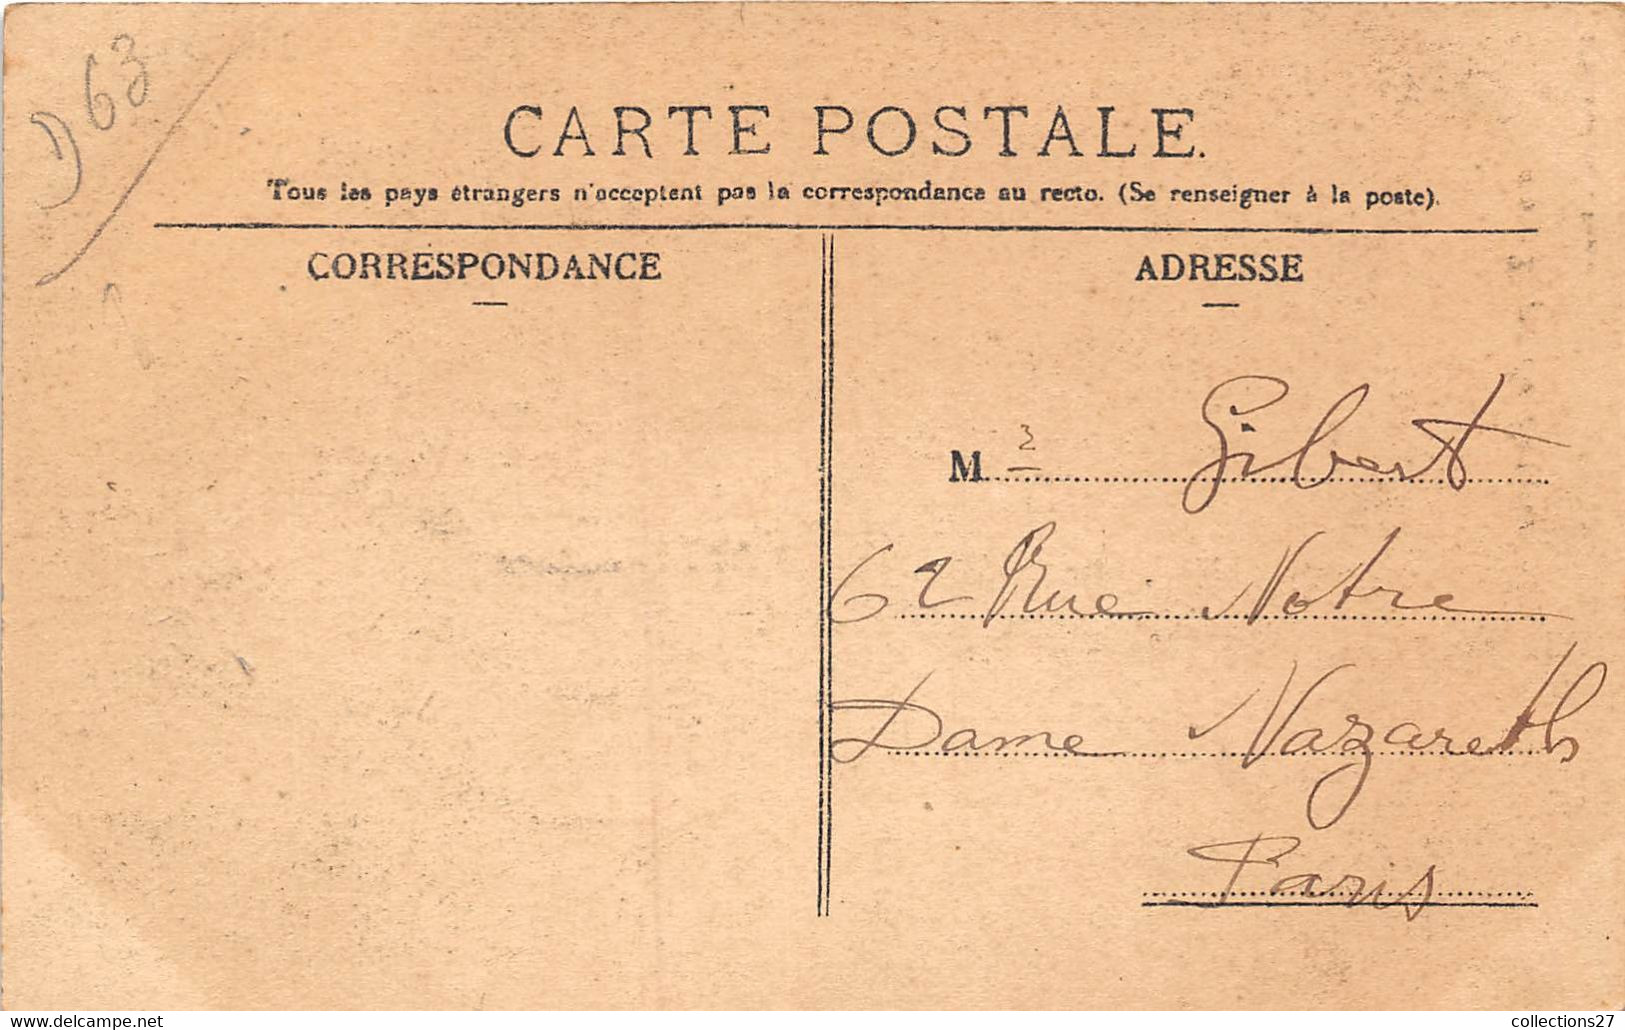 D63
CARTE POSTALE.
Tous les pays étrangers n'acceptent pas la correspondance au recto. (Se renseigner à la poste).
CORRESPONDANCE
ADRESSE
M Gibert
62 Rue Notre
Dame Nazareth
Paris
collections27